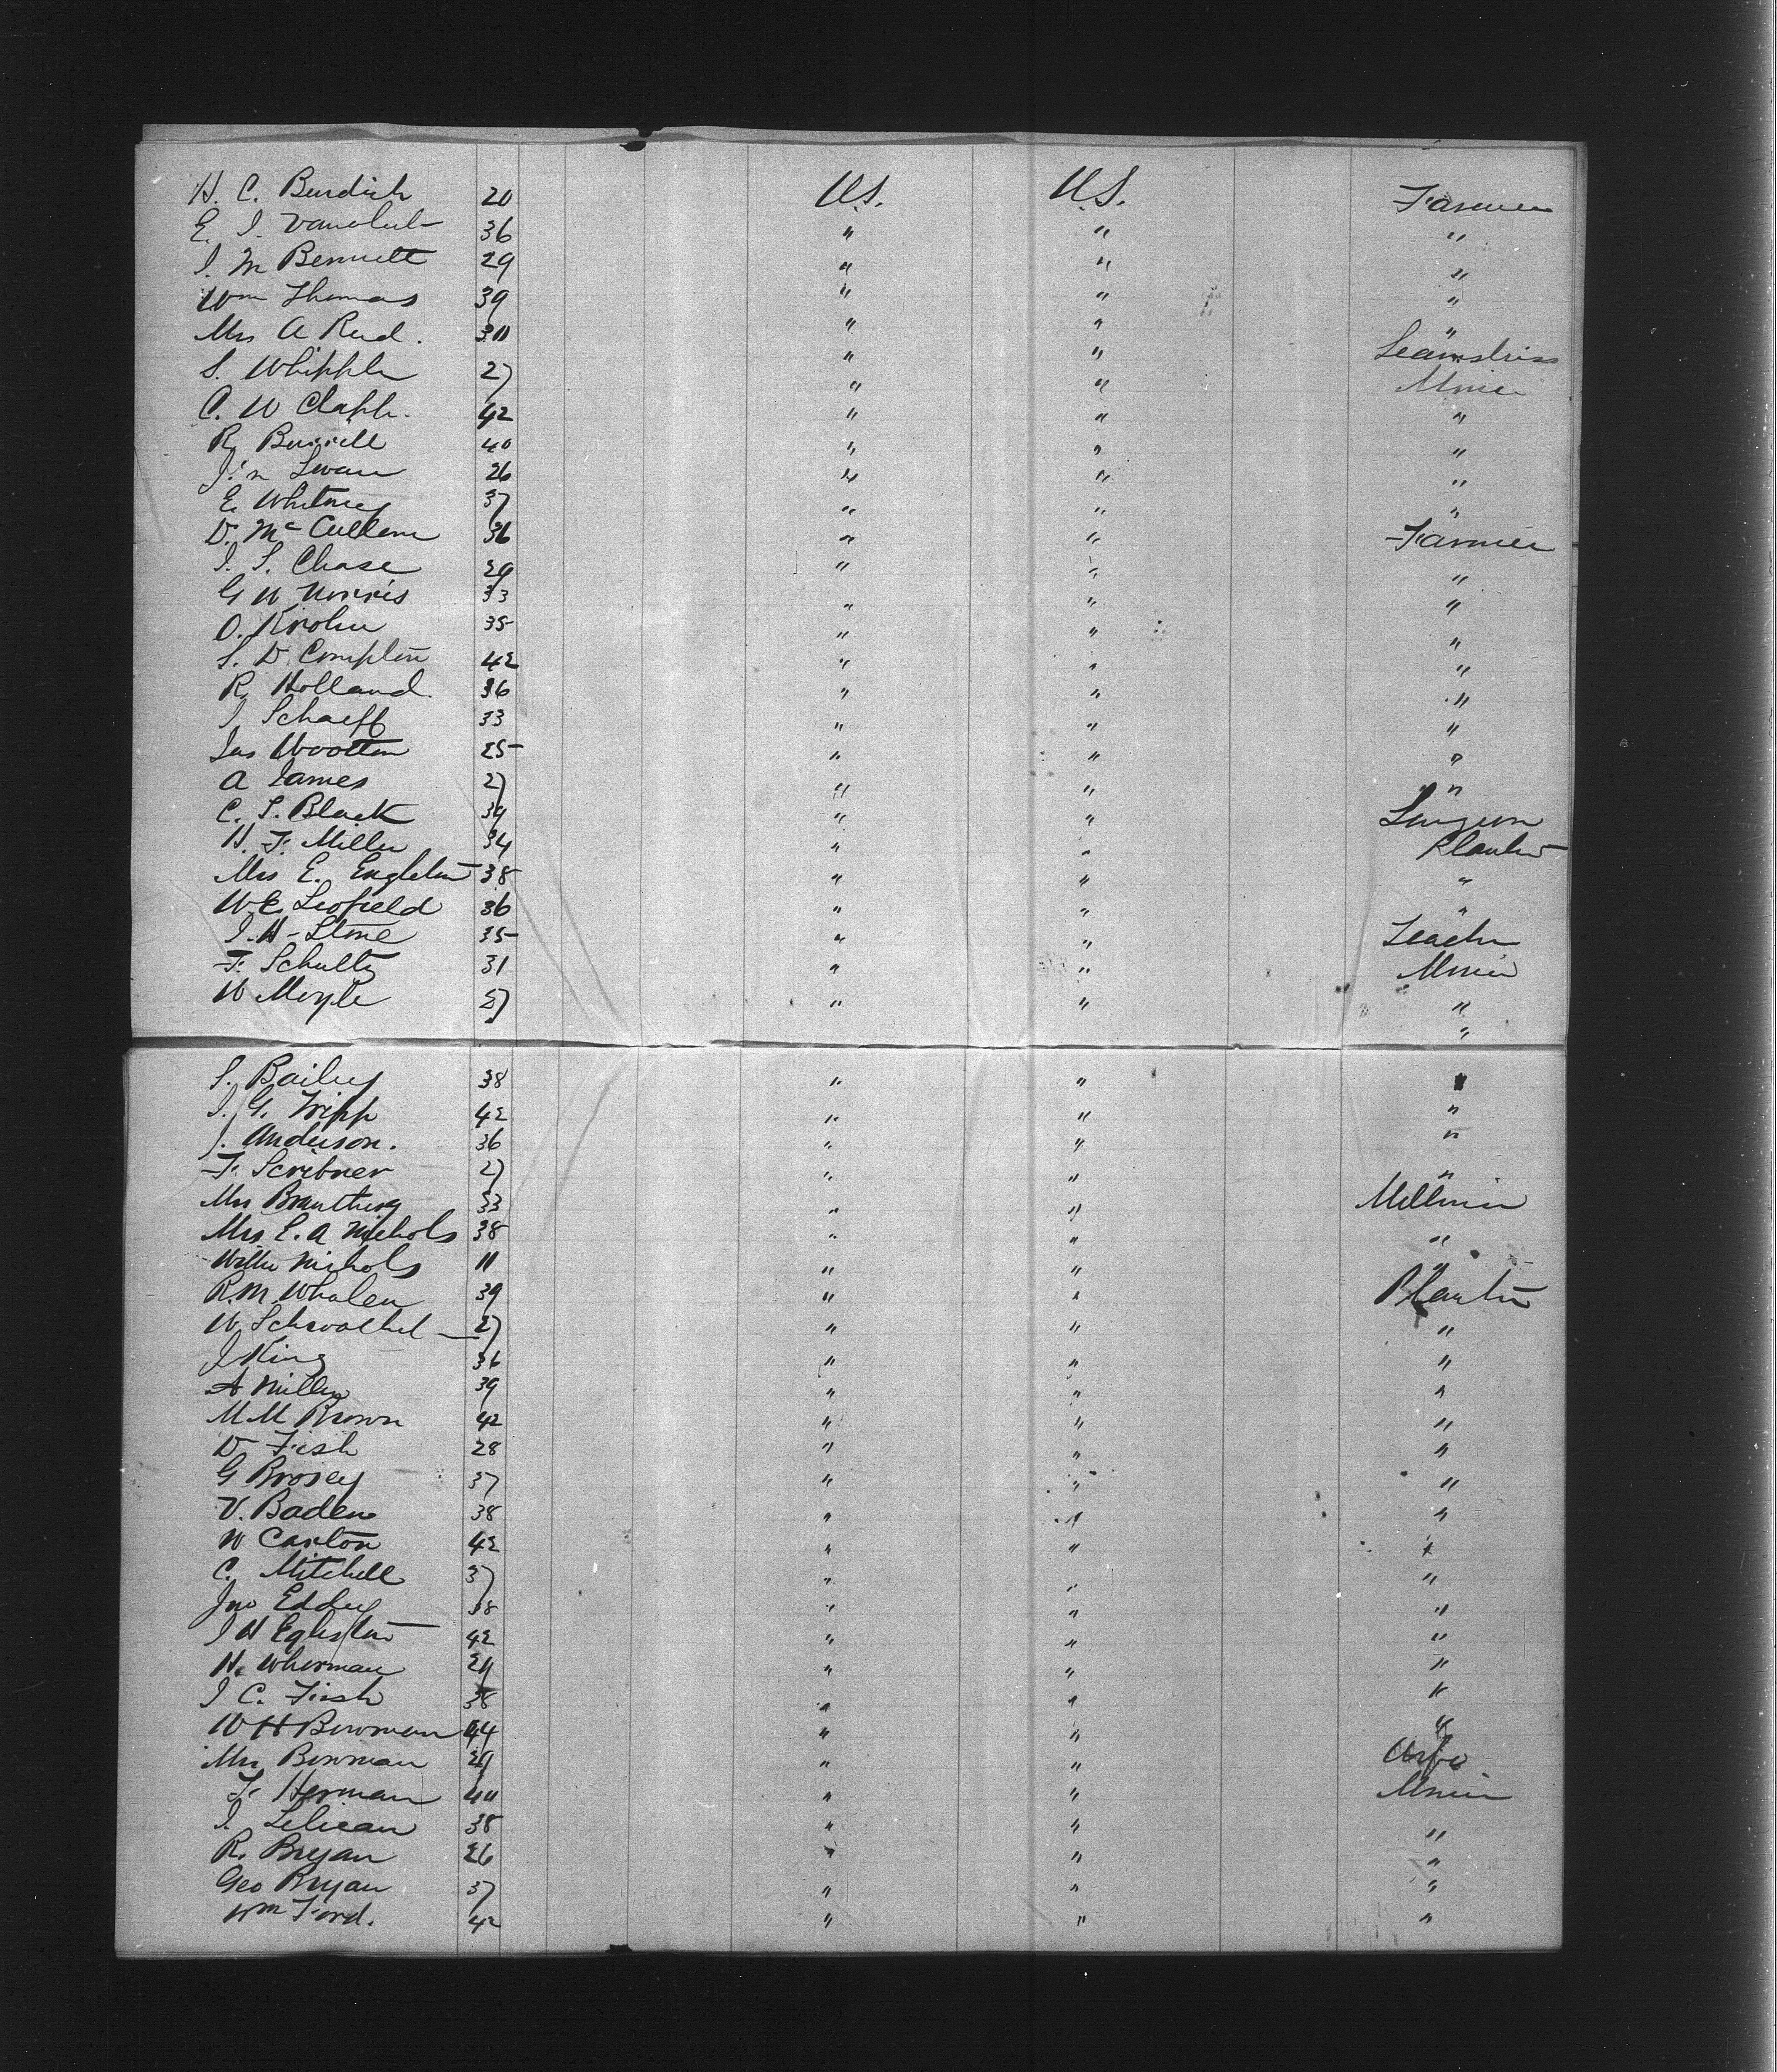 H. C. Burdick 20 U.S. U.S. Farmer
E. J. Vanolul 36 " " "
J. M Bennett 29 " " "
Wm Thomas 39 " " "
Mrs A Reid. 30 " " "
S. Whipple 27 " " Seamstriss
C. W Clapp. 42 " " Miner
R. Burrell 40 " " "
Swan 26 " " "
E. Whitney 37 " " "
D. McCullom 36 " " Farmer
J. S. Chase 29 " " "
G W Norris 33 " " "
O. Krohn 35 " " "
S. D. Compton 42 " " "
R. Holland. 36 " " "
J Schaeff 33 " " "
Jas Wootten 25 " " "
A James 27 " " "
C. S. Black 39 " " Surgeon
H. F. Miller 34 " " Planter
Mrs E. Engleton 38 " " "
W.E. Scofield 36 " " "
J. H. Stone 35 " " Teacher
F. Schultz 31 " " Miner
W Moyle 27 " " "
"
S. Bailey 38 " " "
J. G. Tripp 42 " " "
J. Anderson. 36 " " "
F. Scribner 27 " " "
Mrs Branthing 33 " " Milliner
Mrs E. A Nichols 38 " " "
Willie Nichols 11 " " "
R. M. Whalen 39 " " Planter
W. 27 " " "
J King 36 " " "
A Miller 39 " " "
M M Brown 42 " " "
D Fish 28 " " "
G Brosey 37 " " "
V. Baden 38 " " "
W Carlton 42 " " "
C. Mitchell 37 " " "
Jno Eddey 38 " " "
J H Egleston 42 " " "
H. Wherman 29 " " "
J C. Fish 38 " " "
W H Bowman 44 " " "
Mrs Bowman 29 " "
F. Herman 40 " " Miner
J. 38 " " "
R. Bryan 26 " " "
Geo Bryan 37 " " "
Wm Ford. 42 " " "